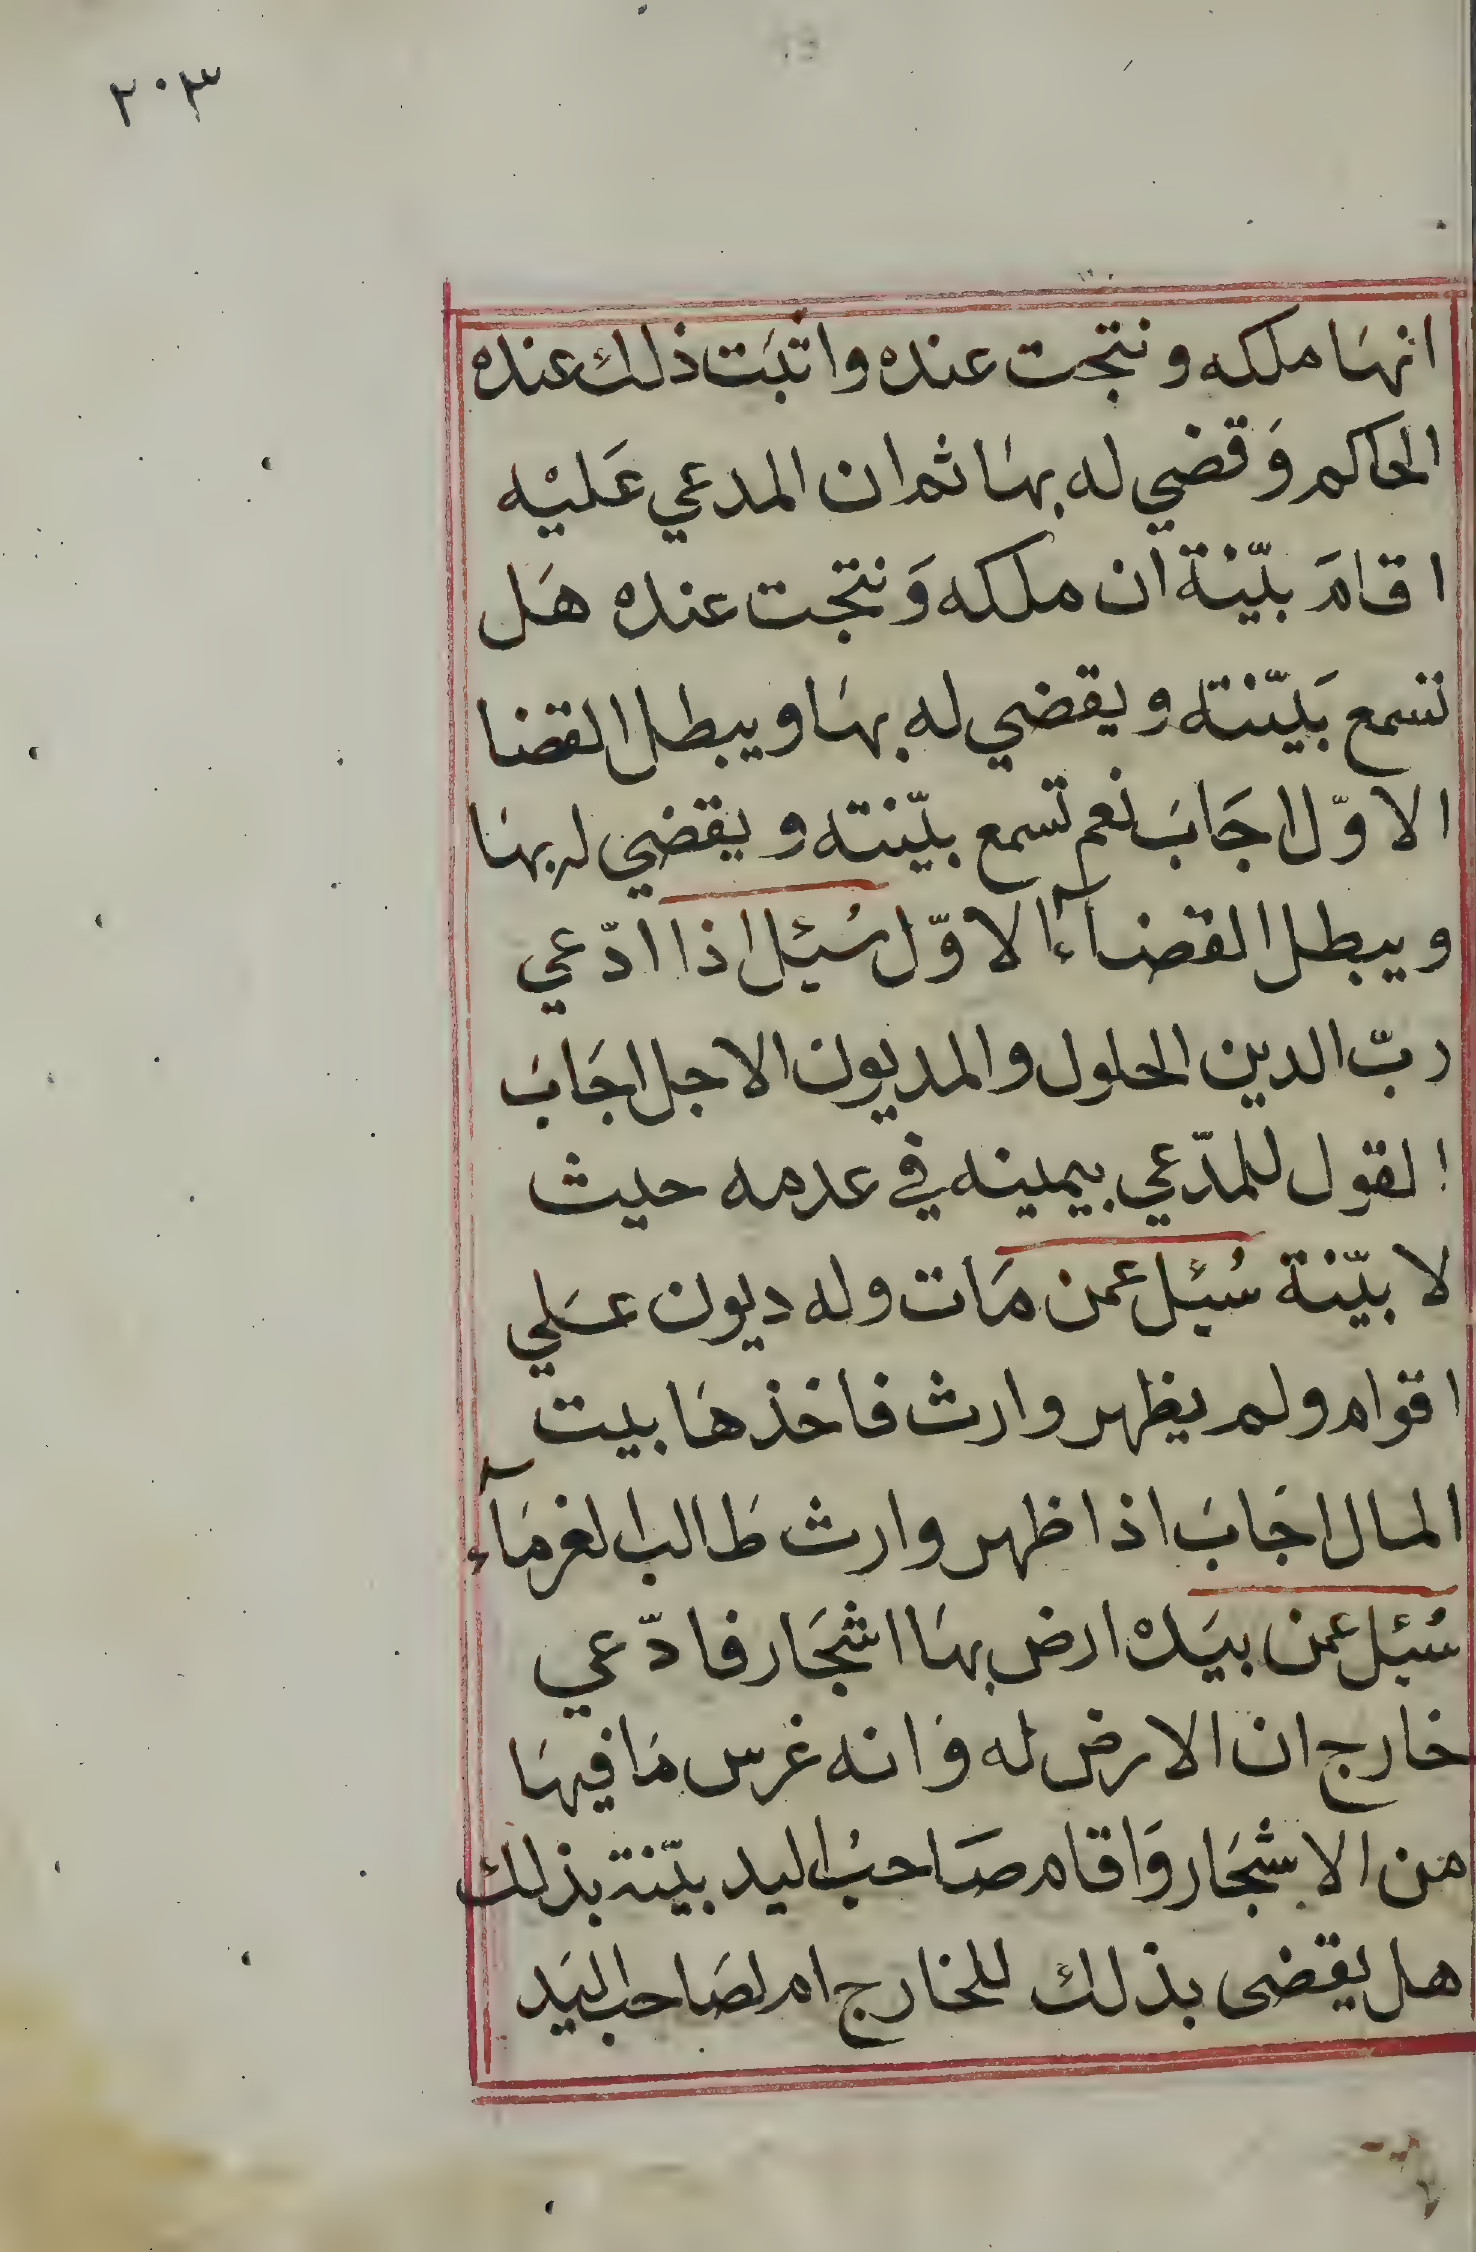 ٢٠٣
انهَا ملكه ونتجت عنده واثبَت ذلك عنده
الحاكم وَقضي له بهَا ثم ان المدعي عَليْه
اقامَ بيّنة ان ملكه وَنتجت عنده هَل
تسمع بَيّنته ويقضي له بهَا ويبطل القضا
الاوّل اجَابَ نعم تسمع بيّنته ويقضي له بهَا
ويبطل القضآء الاوّل سُئل اذا ادّعي
ربّ الدين الحلول والمديون الاجل اجَابَ
القول للمدّعي بيمينه في عدمه حيث
لا بيّنة سُئل عمن مَات وله ديون عَلي
اقوام ولم يظهر وارث فاخذهَا بيت
المال اجَابَ اذا ظهر وارث طَالب الغرمَآء
سُئل عمن بيَده ارض بهَا اشجَار فادّعي
خارج ان الارض له وَانه غرس مَا فيهَا
من الاشجَار وَاقام صَاحبُ اليد بيّنة بذلك
هل يقضى بذلك للخارج ام لصَاحب اليَد